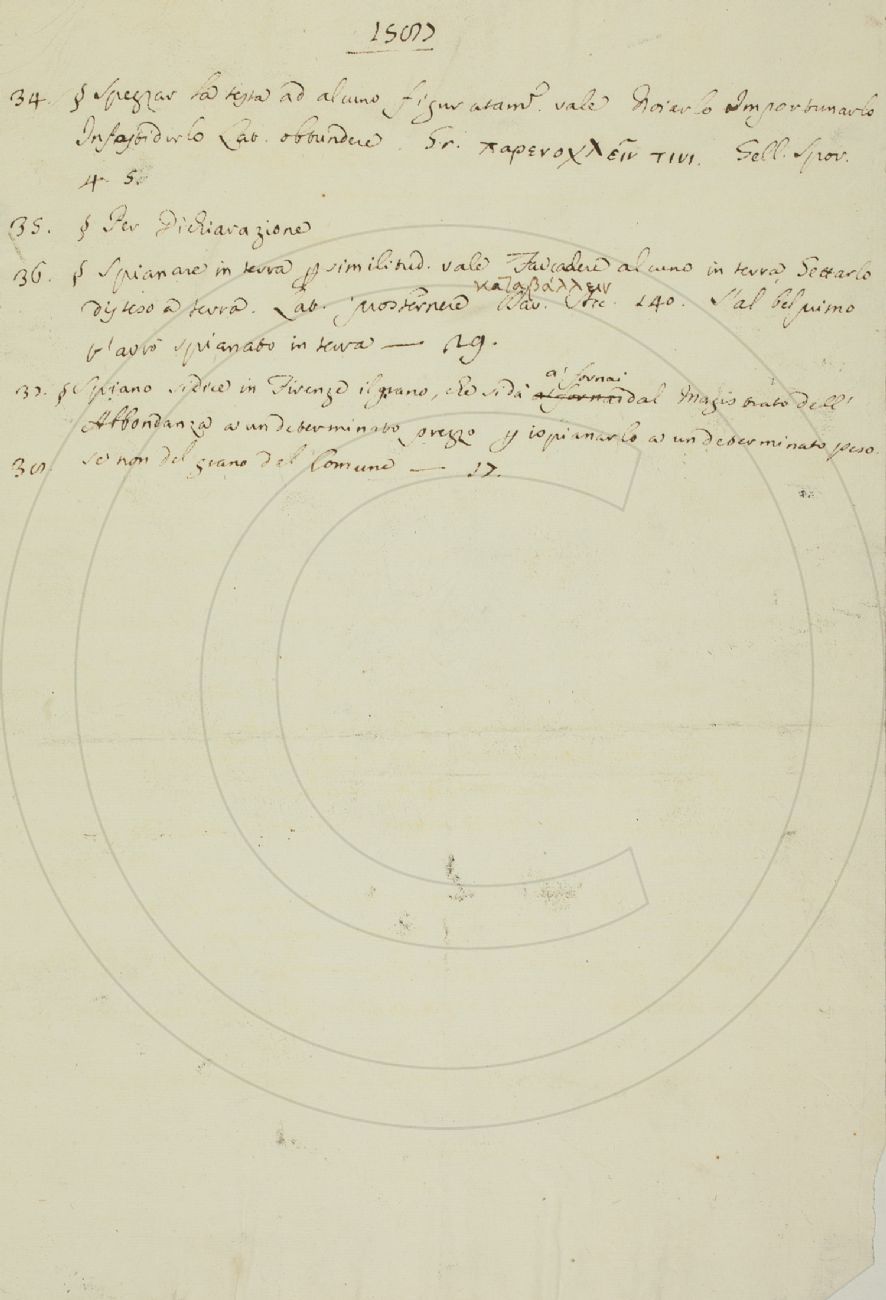 34. § Spezzar la testa ad alcuno figuratam.e vale Noiarlo Importunarlo
Infastidirlo Lat. obtundere. Gr. παρενοχλεῖν τινι. Gell. Spor.
4. 5.
35. § Per Dichiarazione
36. § Spianare in terra p similitud. vale Far cadere alcuno in terra Gettarlo
καταβάλλειν
disteso a terra. Lat. prosternere Nav. 140. S'al bel primo
t'avrò spianato in terra — 29.
a' fornai
37. § Spiano si dice in Firenze il grano, che si dà dal Magistrato dell'
Abbondanza a un determinato prezzo p ispianarlo a un determinato peso.
38. se non del grano del Comune — 17.